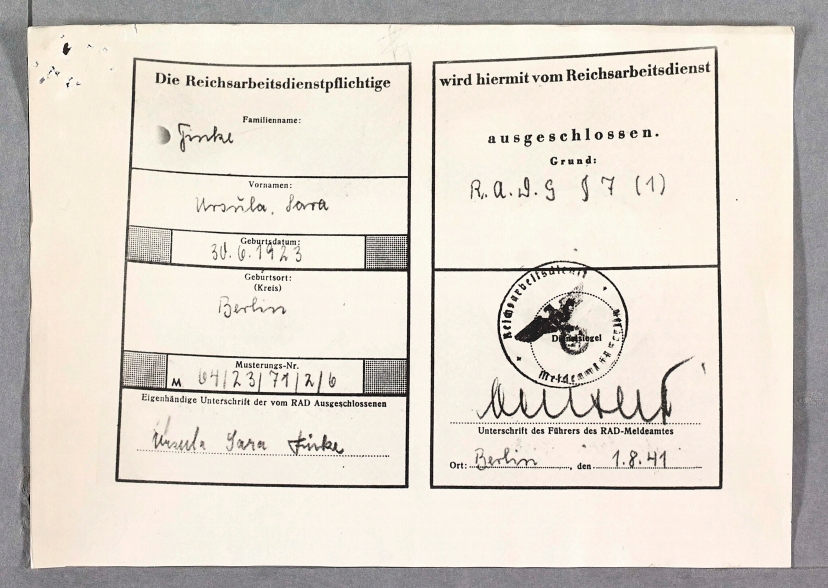 Die Reichsarbeitsdienstpflichtige
Familienname:
Finke
Vornamen:
Ursula, Sara
Geburtsdatum:
30.6.1923
Geburtsort:
(Kreis)
Berlin
Musterungs-Nr.
M 64/23/71/2/6
Eigenhändige Unterschrift der vom RAD Ausgeschlossenen
Ursula Sara Finke
wird hiermit vom Reichsarbeitsdienst
ausgeschlossen.
Grund:
R.A.D.G § 7 (1)
Reichsarbeitsdienst
Dienstsiegel
Unterschrift des Führers des RAD-Meldeamtes
Ort: Berlin, den 1.8.41